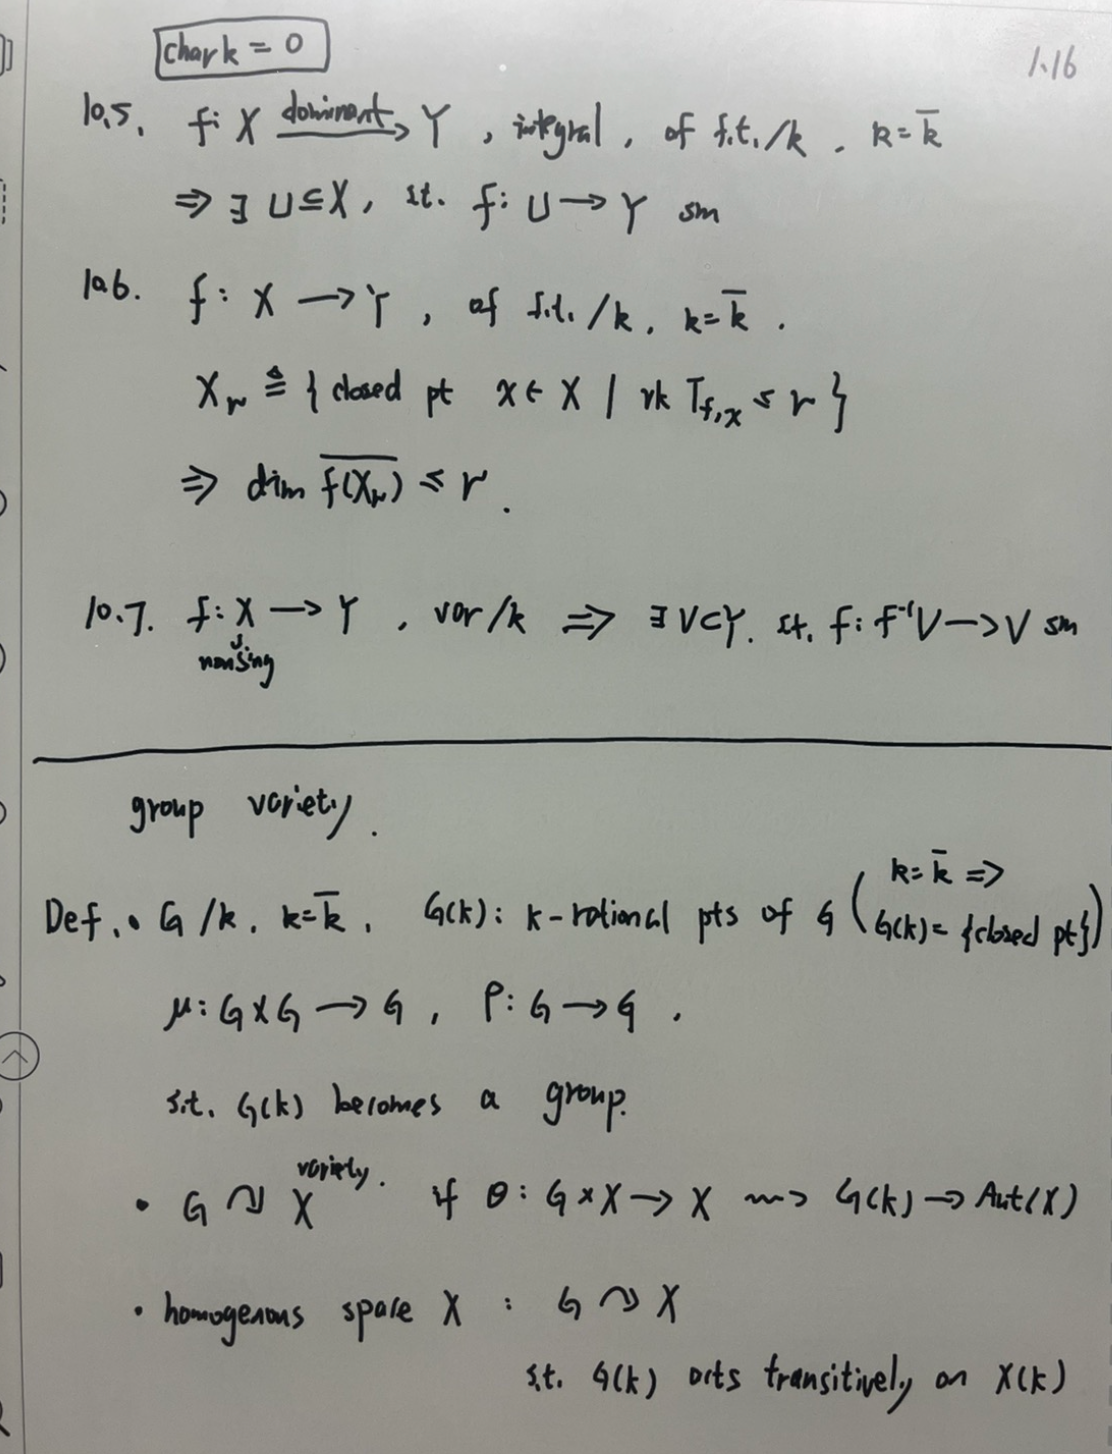 char k = 0
1.16
10.5. f: X dominant→ Y , integral , of f.t./k . k = k̄
⇒ ∃ U ⊆ X , st. f: U → Y sm
10.6. f : X → Y , of f.t. /k . k = k̄ .
X_r ≜ { closed pt x ∈ X | rk T_{f,x} ≤ r }
⇒ dim \overline{f(X_r)} ≤ r .
10.7. f : X → Y . var /k ⇒ ∃ V ⊂ Y. st. f: f⁻¹V → V sm
nonsing
group variety .
Def. • G /k . k = k̄ . G(k) : k-rational pts of G ( k = k̄ ⇒
G(k) = {closed pt} )
μ: G × G → G , ρ: G → G .
s.t. G(k) becomes a group.
variety.
• G ↷ X if θ : G × X → X ⇝ G(k) → Aut(X)
• homogenous space X : G ↷ X
s.t. G(k) acts transitively on X(k)